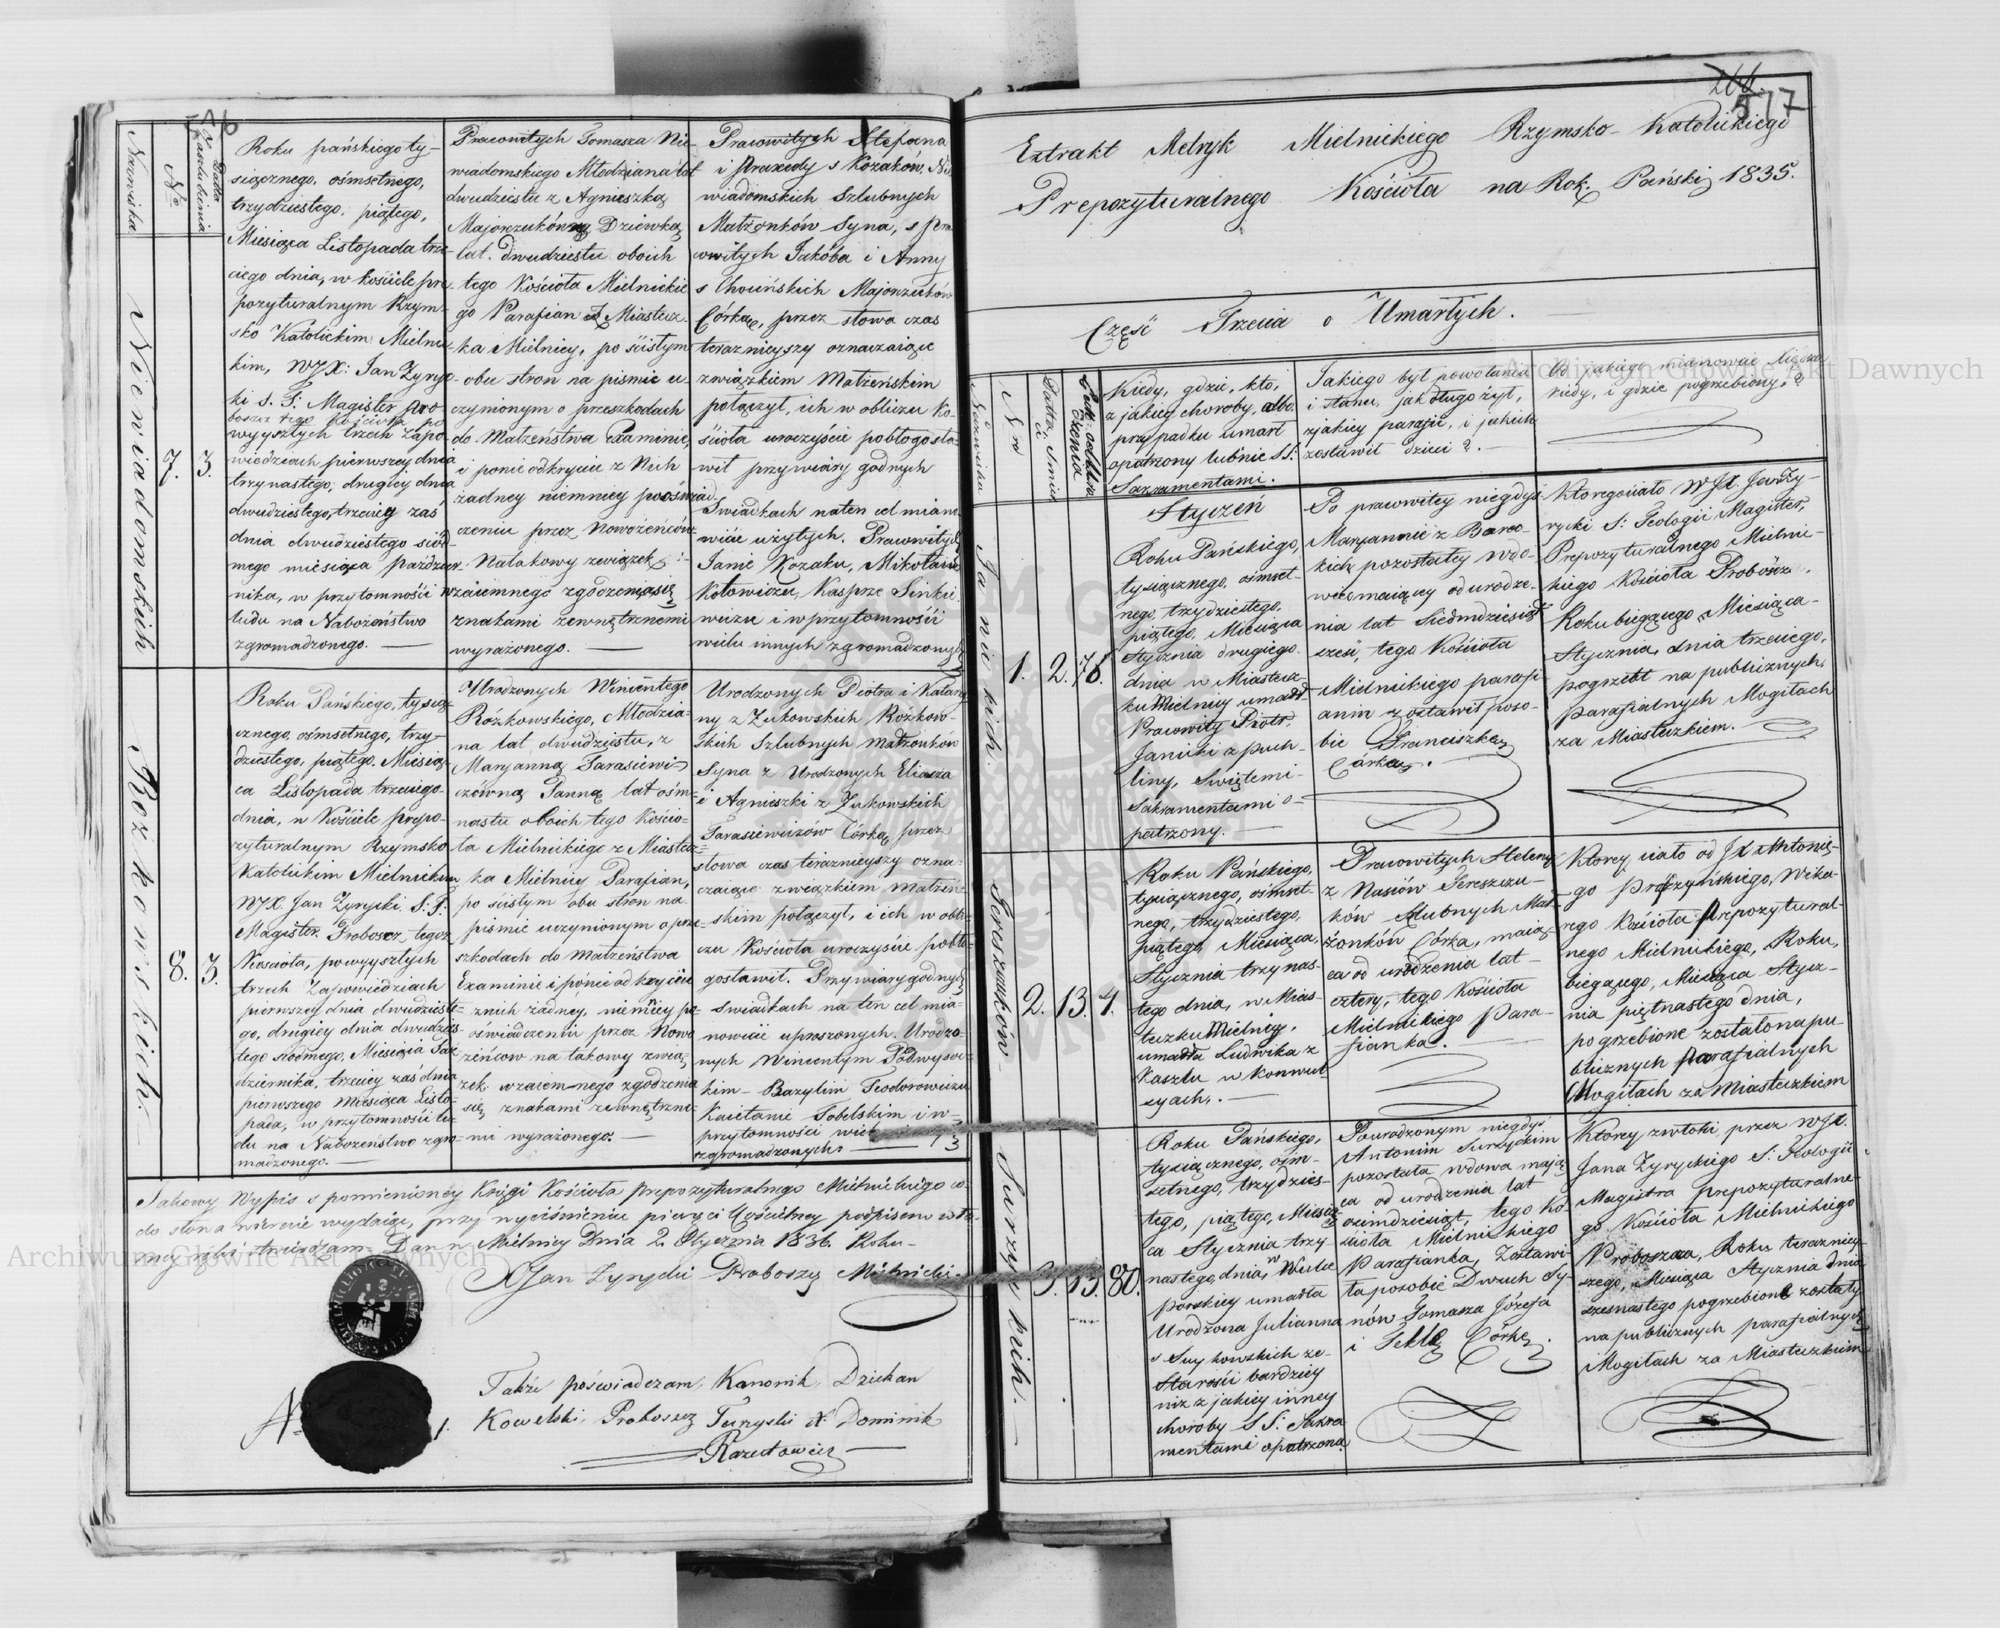 Nazwiska
No
Datta Zaszlubienia
Niewiadomskich
7.
3.
Roku pańskiego ty-
sięcznego, ośmsetnego,
trzydziestego, piątego,
Miesiąca Listopada trze-
ciego dnia, w kościele pre-
pozyturalnym Rzym-
sko Katolickim Mielnic-
kim, WJX: Jan Zyryc-
ki S. T: Magister Pro-
boszcz tego Kościoła po
wyyszłych trzech Zapo-
wiedziach pierwszey dnia
trzynastego, drugiey dnia
dwudziestego, trzeciey zaś
dnia dwudziestego siód-
mego miesiąca paździer-
nika, w przytomności
ludu na Nabożeństwo
zgromadzonego.
Pracowitych Tomasza Nie-
wiadomskiego Młodziana lat
dwudziestu z Agnieszką
Majorczukówną Dziewką
lat dwudziestu oboich
tego Kościoła Mielnickie-
go Parafian z Miastecz-
ka Mielnicy, po ścisłym
obu stron na pismie u-
czynionym o przeszkodach
do Małżeństwa Examinie,
i ponieodkryciu z Nich
żadney niemniey pooświad-
czeniu przez Nowożeńców
Natakowy związek
wzaiemnego zgodzenia się
znakami zewnętrznemi
wyrażonego.
Pracowitych Stefana
i Praxedy s Kozaków, Nie-
wiadomskich Szlubnych
Małżonków Syna, s pra-
cowitych Jakóba i Anny
s Choińskich Majorczuków
Córkę, przez słowa czas
teraznieyszy oznaczaiące
związkiem Małżeńskim
połączył, ich w obliczu Ko-
ścioła uroczyście pobłogosła-
wił przy wiary godnych
Świadkach naten cel miano-
wicie użytych. Pracowitych
Janie Kozaku, Mikołaiu
Kotowiczu, Kasprze Sinkie-
wiczu i w przytomności
wielu innych zgromadzonych
Rożkowskich.
8.
3.
Roku Pańskiego, tysią-
cznego, ośmsetnego, trzy-
dziestego, piątego, Miesią-
ca Listopada trzeciego
dnia, w Kościele prepo-
zyturalnym Rzymsko
Katolickim Mielnickim
WJX. Jan Zyrycki S: T:
Magister Proboszcz tegoż
Kościoła, powyyszłych
trzech Zapowiedziach
pierwszey dnia dwudzieste-
go, drugiey dnia dwudzies-
tego siódmego, Miesiąca Paź-
dziernika, trzeciey zaś dnia
pierwszego Miesiąca Listo-
pada, w przytomności lu-
du na Nabożeństwo zgro-
madzonego.
Urodzonych Winientego
Różkowskiego, Młodzia-
na lat dwudziestu, z
Maryanną Tarasiewi-
czówną Panną lat ośm-
nastu oboich tego Kościo-
ła Mielnickiego z Miastecz-
ka Mielnicy Parafian,
po ścisłym obu stron na
piśmie uczynionym o prze-
szkodach do małżeństwa
Examinie i ponieodkryciu
znich żadney, niemniey po
oświadczeniu przez Nowo-
żeńcow na takowy zwią-
zek wzaiemnego zgodzenia
się znakami zewnętrzne-
mi wyrażonego.
Urodzonych Piotra i Katarzy-
ny z Żukowskich Różkow-
skich Szlubnych małżonków
Syna z Urodzonych Eliasza
i Agnieszki z Żukowskich
Tarasiewiczów Córką, przez
słowa czas teraznieyszy ozna-
czaiące związkiem małżeń-
skim połączył, i ich w obli-
czu Kościoła uroczyście pobło-
gosławił. Przy wiary godnych
swiadkach na ten cel mia-
nowicie uproszonych. Urodzo-
nych Wincentym Podwysoc-
kim Bazylim Teodorowiczu
Kaietanie Sobelskim i w
przytomności
zgromadzonych.
Takowy Wypis s pomienioney Księgi Kościoła prepozyturalnego Mielnickiego co
do słowa wiernie wydaiąc, przy wyciśnieniu pieczęci Kościelney podpisem wła-
sney ręki stwierdzam. Dan w Mielnicy Dnia 2 Stycznia 1836. Roku
X Jan Zyrycki Proboszcz Mielnicki
Także poświadczam, Kanonik, Dziekan
Kowelski, Proboszcz Turyski X Dominik
577
Extrakt Metryk Mielnickiego Rzymsko-Katolickiego
Prepozyturalnego Kościoła na Rok Pański 1835.
Część Trzecia o Umarłych.
Nazwiska
Nro
Datta Smierci
Kiedy, gdzie, kto,
z jakiey choroby, albo
przypadku umarł
opatrzony lub nie SS:
Sakramentami.
Jakiego był powołania
i stanu, jak długo żył,
z jakiey parafii, i jakich
zostawił dzieci?
Od jakiego mianowicie Xiędza
kiedy, i gdzie pogrzebiony?
Janickich.
1.
2.
76.
Styczeń
Roku Pańskiego,
tysiącznego, ośmset-
nego, trzydziestego,
piątego, Miesiąca
Stycznia drugiego
dnia w Miastecz-
ku Mielnicy umarł
Pracowity Piotr
Janicki z puch-
liny, Swiętemi
Sakramentami o-
patrzony.
Po pracowitey niegdyś
Maryannie z
pozostałey wdo-
wiec maiący od urodze-
nia lat Siedmdziesiąt
sześć, tego Kościoła
Mielnickiego parafi-
anin zostawił poso-
bie Franciszkę
Córkę.
Ktoregociało WJX. Jan Zy-
rycki S: Teologii Magister,
Prepozyturalnego Mielnic-
kiego Kościoła Proboszcz.
Roku biegącego, Miesiąca
Stycznia, dnia trzeciego,
pogrzebł na publicznych
parafialnych Mogiłach
za Miasteczkiem.
Tereszczuków
2.
13.
4.
Roku Pańskiego,
tysiącznego, ośmset-
nego, trzydziestego,
piątego, Miesiąca,
Stycznia trzynas-
tego dnia, w Mias-
teczku Mielnicy,
umarła Ludwika z
Kaszlu w konwul-
syach.
Pracowitych
z Tereszczu-
ków Szlubnych Mał-
żonków Córka, maią-
ca od urodzenia lat
cztery, tego Kościoła
Mielnickiego Para-
fianka.
Ktorey ciało od JX Antonie-
go Prószyńskiego, Wika-
rego Kościoła Prepozytural-
nego Mielnickiego, Roku,
biegącego, Miesiąca Stycz-
nia piętnastego dnia,
pogrzebione zostało na pu-
blicznych parafialnych
Mogiłach za Miasteczkiem
Surzyckich.
3.
13.
80.
Roku Pańskiego,
tysiącznego, ośm-
setnego, trzydzies-
tego, piątego, Miesią-
ca Stycznia trzy-
nastego, dnia, w Wulce
porskiey umarła
Urodzona Julianna
s Suykowskich ze
Starości bardziey
niż z jakiey inney
choroby S S: Sakra
mentami opatrzona.
Pourodzonym niegdyś
Antonim Surzyckim
pozostała wdowa mają-
ca od urodzenia lat
ośmdziesiąt, tego Ko-
scioła Mielnickiego
Parafianka, Zostawi-
ła posobie Dwuch Sy-
nów Tomasza Józefa
i Teklę Córkę.
Ktorey zwłoki przez WJX.
Jana Zyryckiego S: Teologii
Magistra prepozyturalne-
go Kościoła Mielnickiego
Proboszcza, Roku terazniey-
szego, Miesiąca Stycznia dnia
szesnastego pogrzebione zostały
na publicznych parafialnych
Mogiłach za Miasteczkiem
Archiwum Główne Akt Dawnych
Archiwum Główne Akt Dawnych